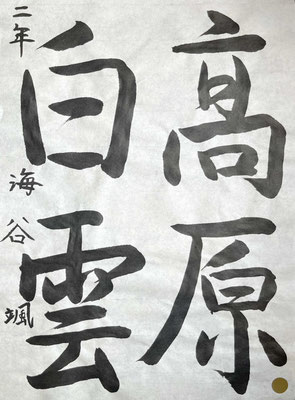 高原
白雲
二年 海谷颯